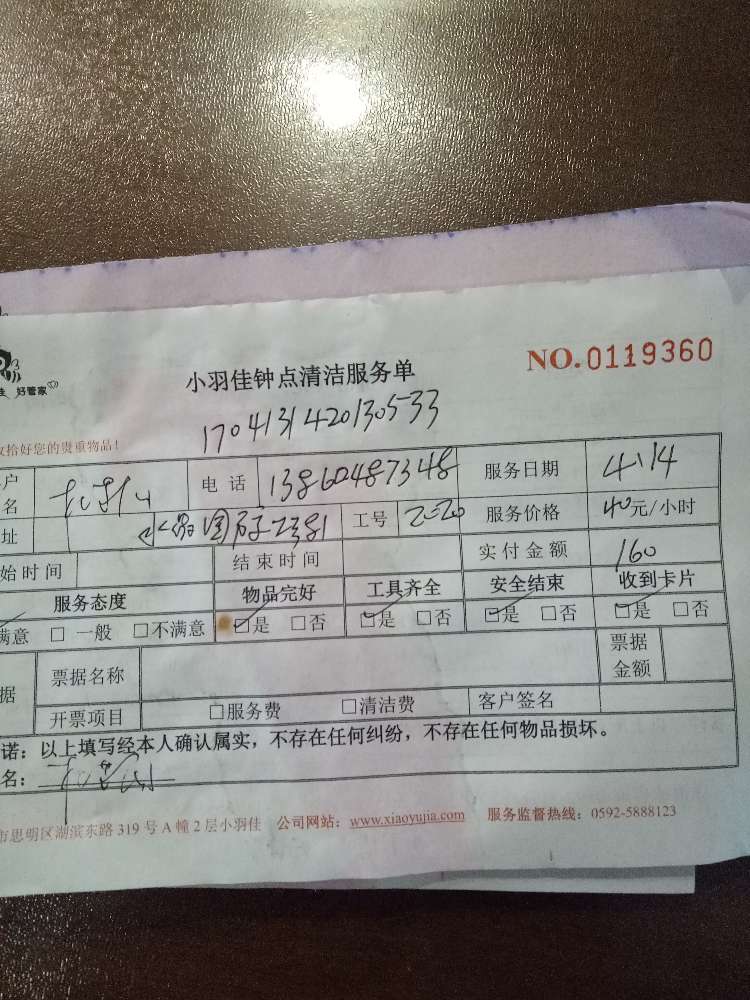 NO.0119360
小羽佳钟点清洁服务单
好管家
1704131420130533
收拾好您的贵重物品!
户名 电话 13860487348 服务日期 4.14
址 工号 2020 服务价格 40元/小时
始时间 结束时间 实付金额 160
服务态度 物品完好 工具齐全 安全结束 收到卡片
满意 □ 一般 □不满意 □是 □否 □是 □否 □是 □否 □是 □否
据 票据名称 票据金额
开票项目 □服务费 □清洁费 客户签名
诺：以上填写经本人确认属实，不存在任何纠纷，不存在任何物品损坏。
名：
市思明区湖滨东路 319 号 A 幢 2 层小羽佳 公司网站：www.xiaoyujia.com 服务监督热线：0592-5888123